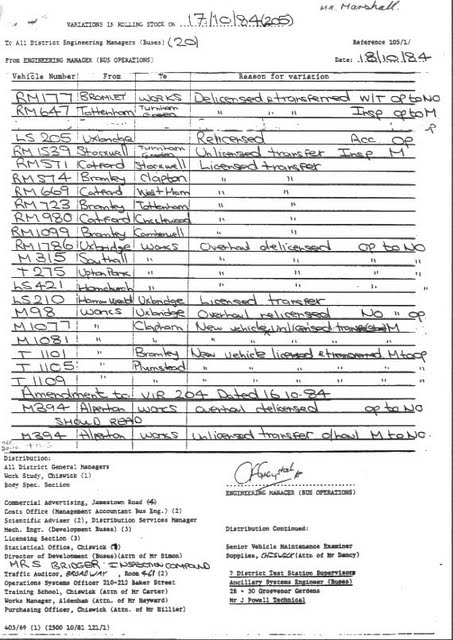 MR. Marshall.
VARIATIONS IN ROLLING STOCK ON 17/10/84 (205)
To All District Engineering Managers (Buses) (20) Reference 105/1/
From ENGINEERING MANAGER (BUS OPERATIONS) Date: 18/10/84
Vehicle Number From To Reason for variation
RM177 BROMLEY WORKS Delicensed & transferred W/T OP to NO
RM647 Tottenham Turnham Green " " " Insp op to M
LS 205 Uxbridge Relicensed Acc OP
RM1539 Stockwell Turnham Green Unlicensed transfer Insp M
RM571 Catford Stockwell Licensed transfer
RM574 Bromley Clapton " "
RM669 Catford West Ham " "
RM723 Bromley Tottenham " "
RM980 Catford Cricklewood " "
RM1099 Bromley Camberwell " "
RM1786 Uxbridge Works Overhaul delicensed OP to NO
M315 Southall " " " " "
T275 Upton Park " " " " "
LS421 Hornchurch " " " " "
LS210 Uxbridge Licensed transfer
M98 Works Uxbridge Overhaul relicensed NO " OP
M1077 " Clapham New vehicle, Unlicensed transfer M
M1081 " " " " "
T 1101 " Bromley New vehicle licensed & transferred M to OP
T 1105 " Plumstead " " " "
T 1109 " " " " " "
Amendment to VIR 204 Dated 16.10.84
M394 Alperton Works Overhaul delicensed OP to NO
SHOULD READ
M394 Alperton Works Unlicensed transfer o/haul M to NO.
Distribution:
All District General Managers
Work Study, Chiswick (1)
Body Spec. Section
ENGINEERING MANAGER (BUS OPERATIONS)
Commercial Advertising, Jamestown Road (4)
Costs Office (Management Accountant Bus Eng.) (2)
Scientific Adviser (2), Distribution Services Manager
Mech. Engr. (Development Buses) (3)
Licensing Section (3)
Statistical Office, Chiswick
Director of Development (Buses)(Attn of Mr Simon)
MRS BRIDGER INSPECTION COMPOUND
Traffic Auditor, BROADWAY, Room 461 (2)
Operations Systems Officer 210-212 Baker Street
Training School, Chiswick (Attn of Mr Carter)
Works Manager, Aldenham (Attn of Mr Hayward)
Purchasing Officer, Chiswick (Attn of Mr Hillier)
Distribution Continued:
Senior Vehicle Maintenance Examiner
Supplies, CHISWICK (Attn of Mr Dancy)
7 District Test Station Supervisors
Ancillary Systems Engineer (Buses)
28 - 30 Grosvenor Gardens
Mr J Powell Technical
603/69 (1) (2500 10/81 121/1)